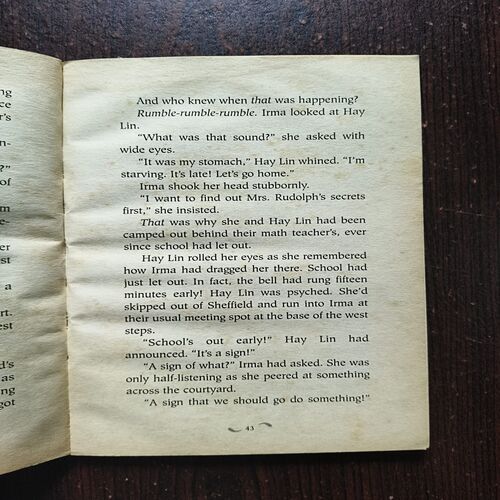 ng
ce
r's
n-
?"
of
m
e-
er
st
a
rt.
est
d's
as
ng
got
And who knew when that was happening?
Rumble-rumble-rumble. Irma looked at Hay
Lin.
"What was that sound?" she asked with
wide eyes.
"It was my stomach," Hay Lin whined. "I'm
starving. It's late! Let's go home."
Irma shook her head stubbornly.
"I want to find out Mrs. Rudolph's secrets
first," she insisted.
That was why she and Hay Lin had been
camped out behind their math teacher's, ever
since school had let out.
Hay Lin rolled her eyes as she remembered
how Irma had dragged her there. School had
just let out. In fact, the bell had rung fifteen
minutes early! Hay Lin was psyched. She'd
skipped out of Sheffield and run into Irma at
their usual meeting spot at the base of the west
steps.
"School's out early!" Hay Lin had
announced. "It's a sign!"
"A sign of what?" Irma had asked. She was
only half-listening as she peered at something
across the courtyard.
"A sign that we should go do something!"
43